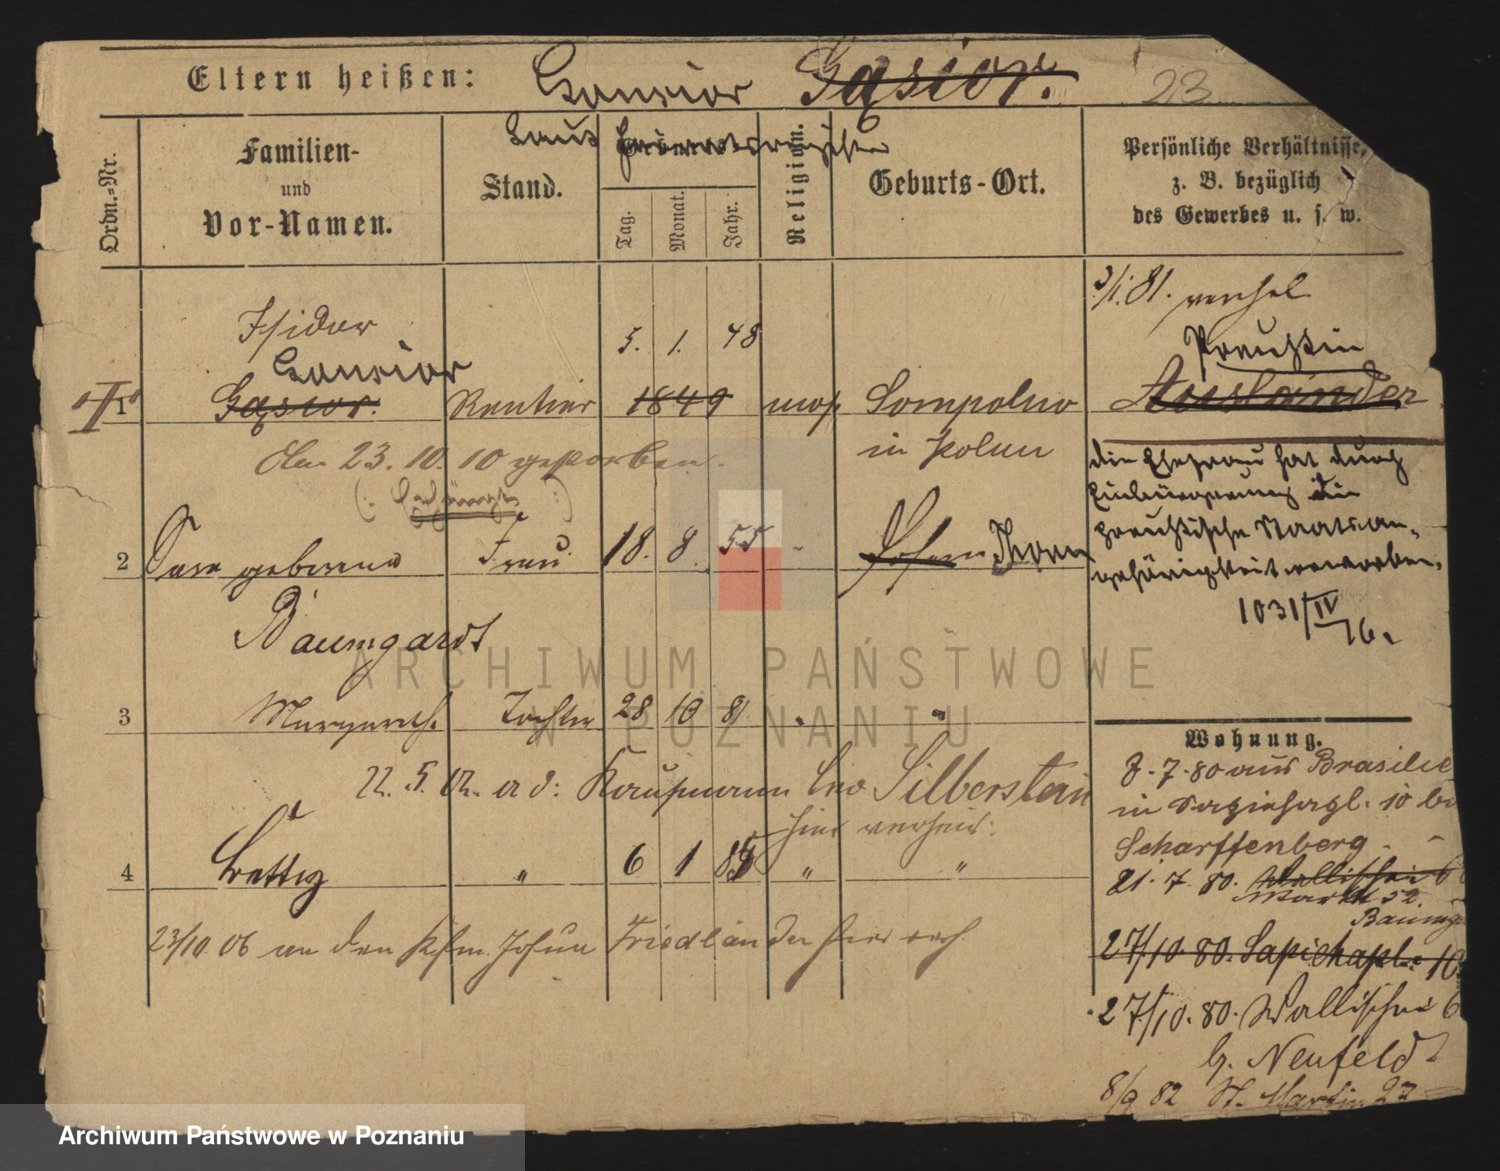 Eltern heißen: Gonsior Gąsior. 23
laut
Ordn.-Nr.
Familien-
und
Vor-Namen.
Stand.
Tag.
Monat.
Jahr.
Religion.
Geburts-Ort.
Persönliche Verhältnisse,
z. B. bezüglich
des Gewerbes u. s. w.
Isidor 5. 1. 48
Gonsior
1 Gąsior. Rentier 1849 mos. Sompolno
in Polen
den 23. 10. 10 gestorben.
2 geborene Frau 18. 8. 55 Thorn
Baumgardt
3 Margareth. Tochter 28 10 81 " "
22. 5. 02. a. d. Kaufmann Leo Silberstein
hier verheir.
4 " 6 1 85 " "
23/10. 06 an den Kfm. Friedländer hier
3/1. 81. verehel.
Preußin
Ausländer
die Ehefrau hat durch
Einbürgerung die
preußische Staatsan-
gehörigkeit erworben.
1031/IV 16.
Wohnung.
8. 7. 80 aus Brasilie
in 10 b
Scharffenberg
21. 7. 80. Wallischei 6
Markt 52.
27/10. 80. Sapiehapl. 10
27/10. 80. Wallischei 6
b. Neufeld
8/9 82 St. Martin 27
ARCHIWUM PAŃSTWOWE
W POZNANIU
Archiwum Państwowe w Poznaniu